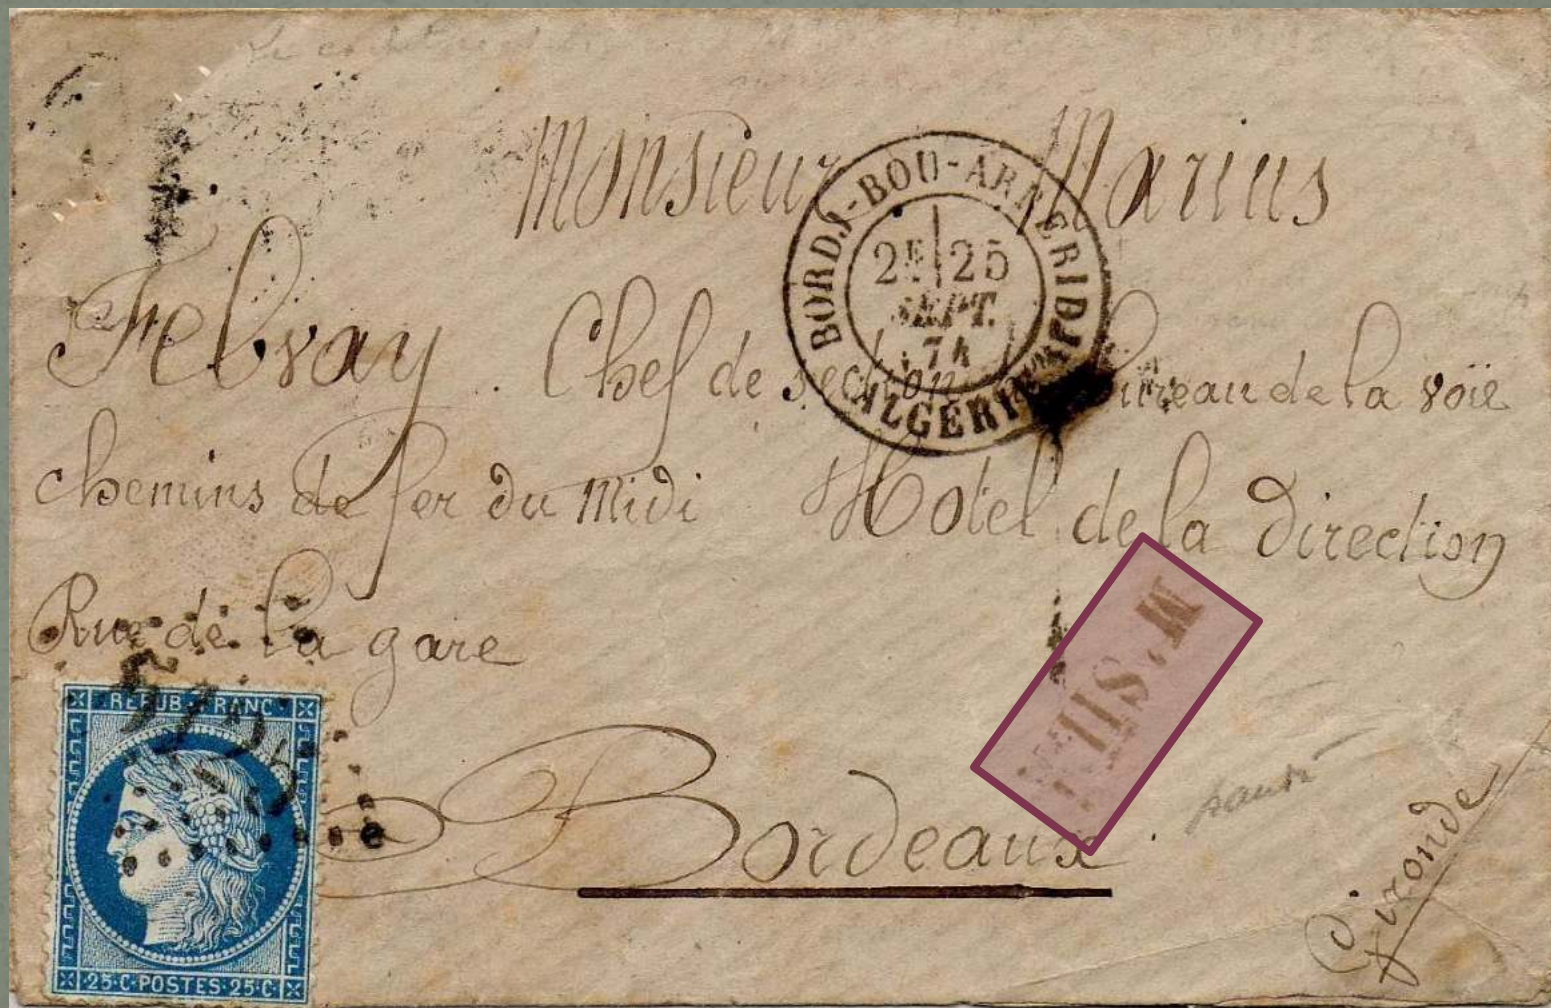 Monsieur Marius
Felvay. Chef de section Bureau de la voïe
chemins de fer du Midi Hotel de la Direction
Rue de la gare
Bordeaux.
Gironde
BORDJ-BOU-ARRERIDJ
2E 25
SEPT.
74
ALGÉRIE
REPUB. FRANC.
25·C·POSTES·25·C